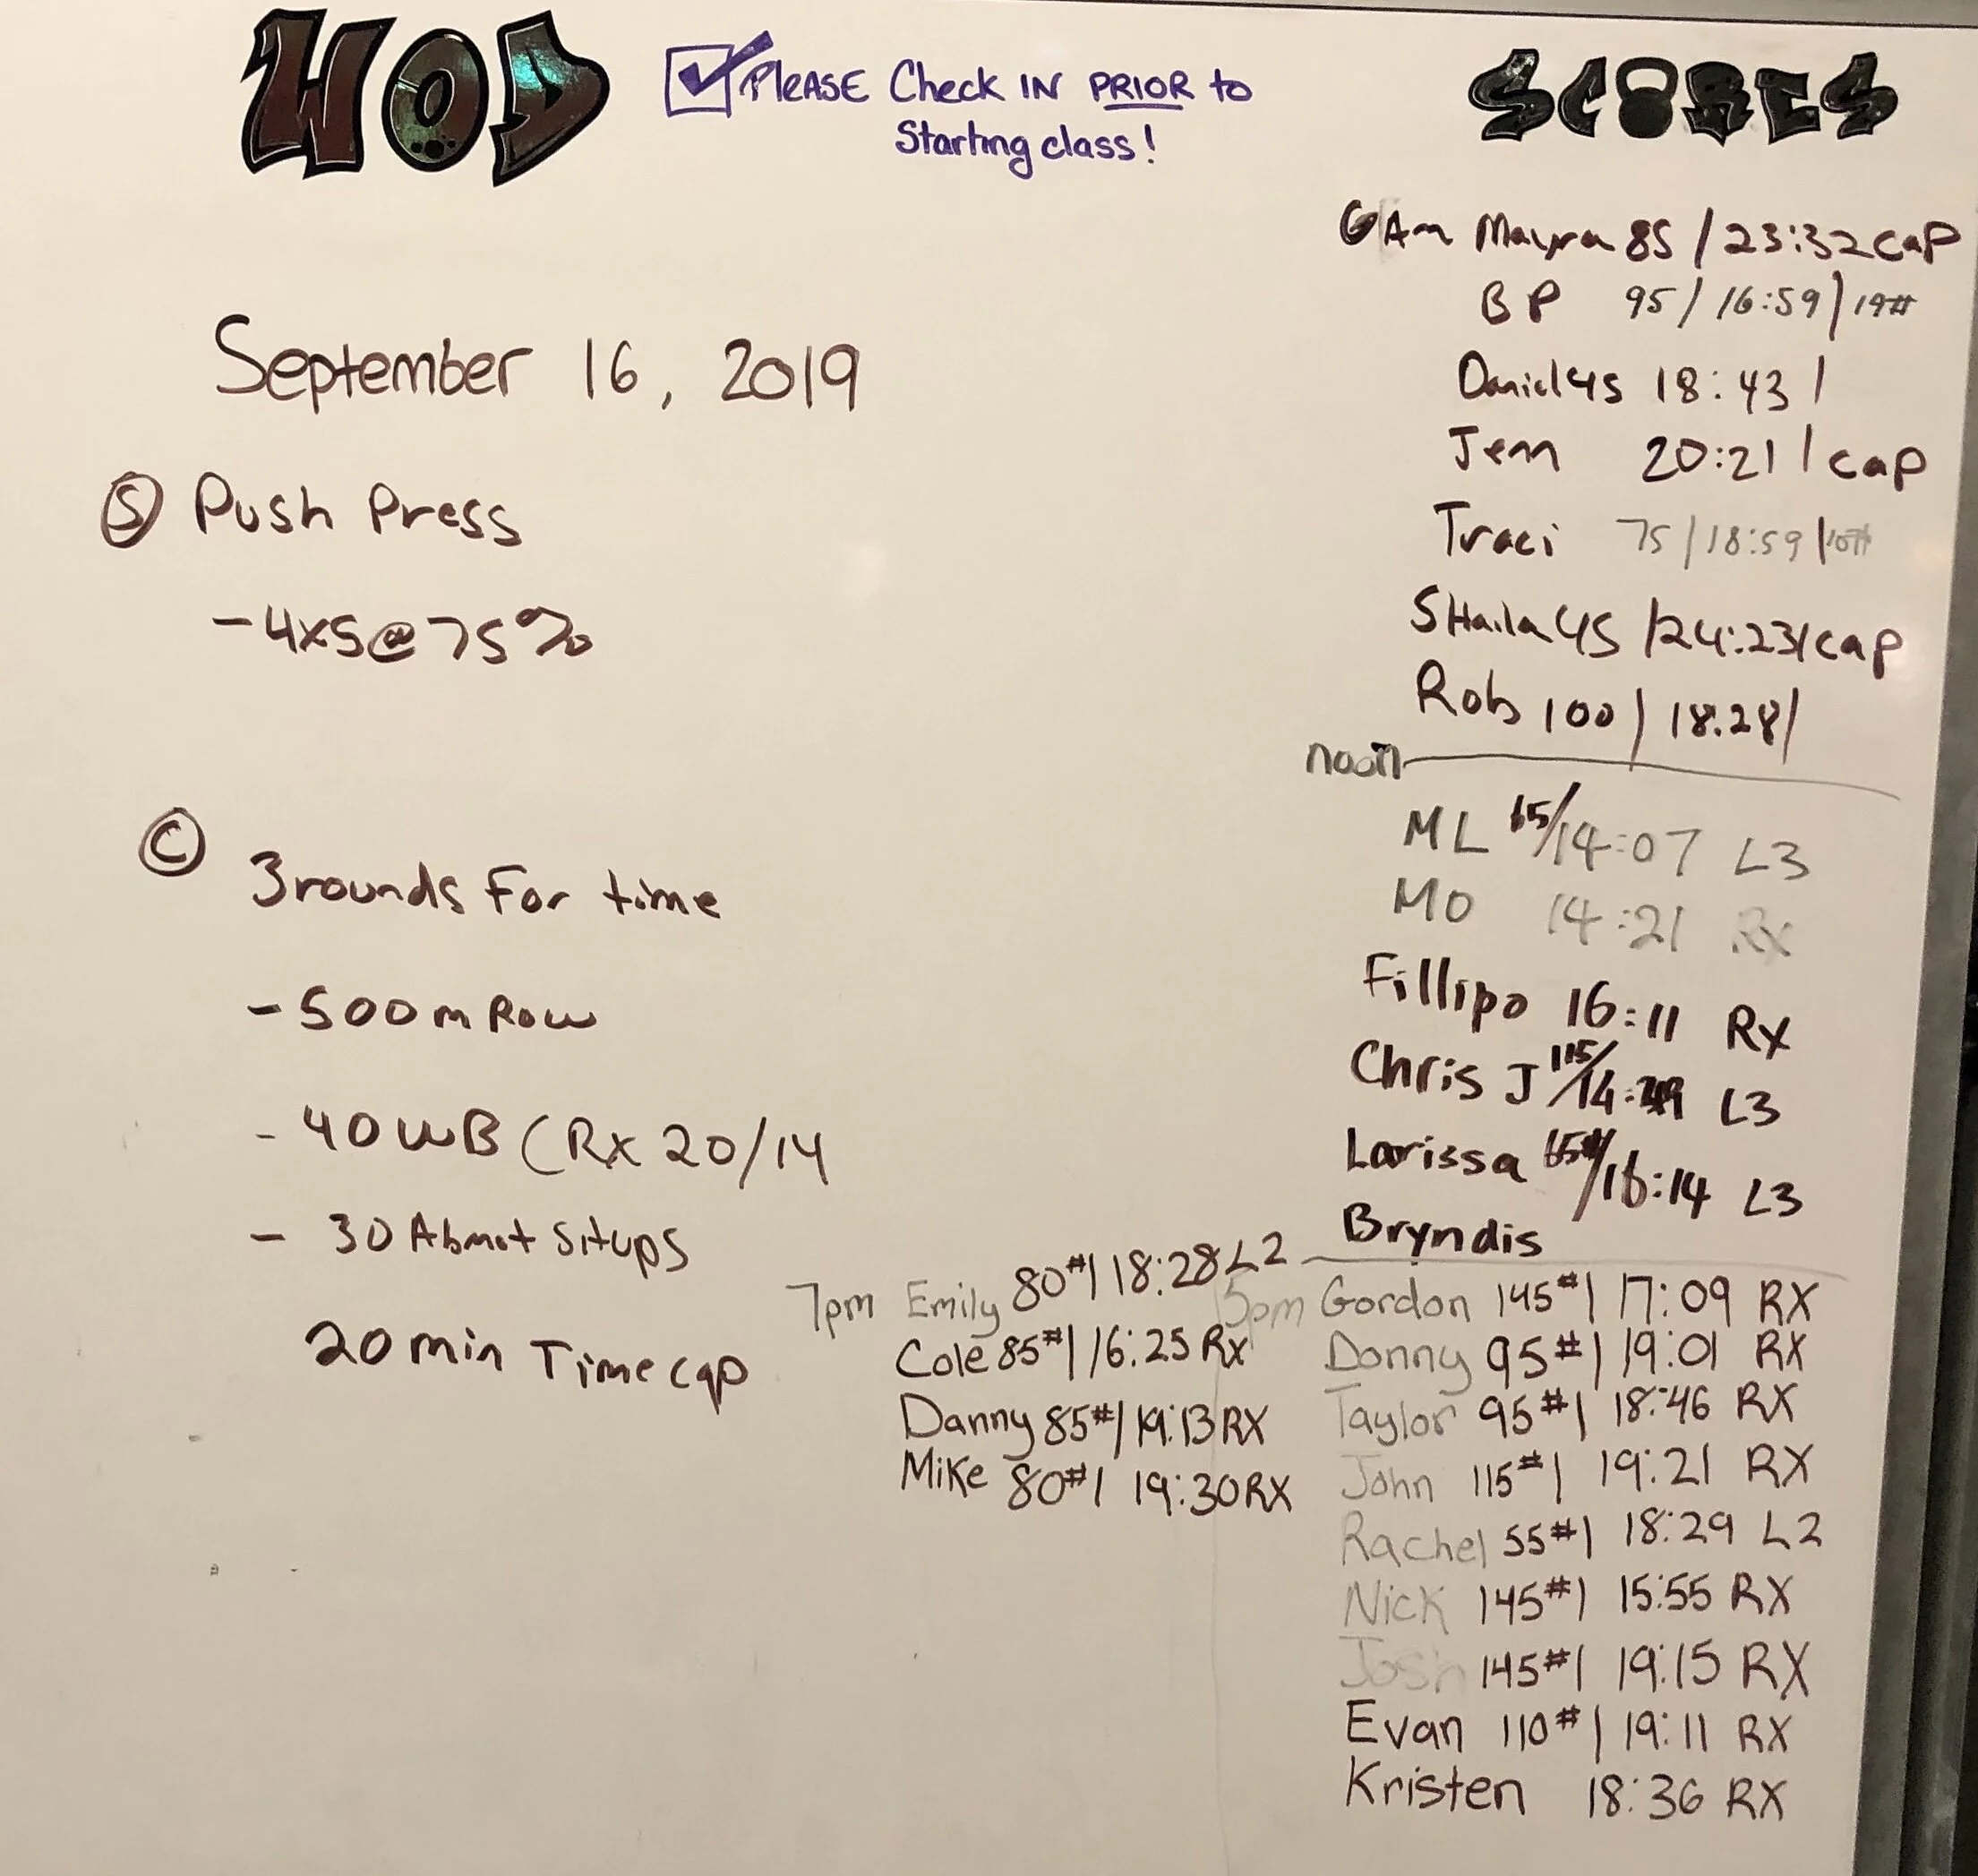 WOD
PLEASE Check IN PRIOR to
Starting class!
SCORES
September 16, 2019
S Push Press
- 4x5@75%
C
3 rounds For time
- 500m Row
- 40 WB (Rx 20/14
- 30 Abmat Situps
20 min Time cap
6 Am Mayra 85 / 23:32 cap
BP 95 / 16:59 / 14#
Daniel 45 18:43 /
Jenn 20:21 / cap
Traci 75 / 18:59 / 10#
SHaila 45 / 24:23 / cap
Rob 100 / 18.28 /
noon
ML 65 / 14:07 L3
MO 14:21 Rx
Fillipo 16:11 Rx
Chris J 115 / L3
Larissa 65# / 16:14 L3
Bryndis
7pm Emily 80# / 18:28 L2
Cole 85# / 16:25 Rx
Danny 85# / 19:13 RX
Mike 80# / 19:30 RX
5pm Gordon 145# / 17:09 RX
Donny 95# / 19:01 RX
Taylor 95# / 18:46 RX
John 115# / 19:21 RX
Rachel 55# / 18:29 L2
Nick 145# / 15:55 RX
Josh 145# / 19:15 RX
Evan 110# / 19:11 RX
Kristen 18:36 RX